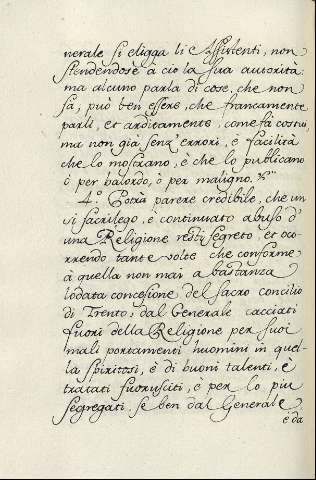 nerale si eligga li Assistenti, non
stendendosè à ciò la sua autorità
ma alcuno parla di cose, che non
sà, può ben essere, che francamente
parli, et arditamente, come fà costui
ma non già senz' errori, è facilità
che lo mostrano, è che lo publicano
ò per balordo, ò per maligno.
4.° Potrà parere credibile, che un
sì sacrilego, è continuato abuso d'
una Religione resti segreto, et oco-
rrendo tante volte che conforme
à quella non mai a bastanza
lodata concesione del Sacro concilio
di Trento, dal Generale cacciati
fuori della Religione per suoi
mali portamenti huomini in quel-
la spiritosi, è di buoni talenti, è
trattati fuorusciti, è per lo più
segregati, se ben dal Generale
è da